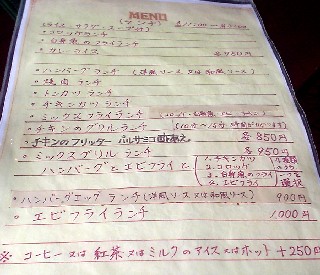 MENU
(ランチ)
ライス サラダ スープ付
・コロッケランチ
・白身魚のフライランチ
・カレーライス 各750円
・ハンバーグランチ (洋風ソース又は和風ソース)
・焼肉ランチ
・トンカツランチ
・チキンカツランチ
・ミックスフライランチ
・チキンのグリルランチ
・チキンのフリッター バルサミコ酢あえ 各850円
・ミックスグリルランチ 各950円
ハンバーグとエビフライと
1.チキンカツ
2.コロッケ
3.白身魚のフライ
4.エビフライ
選択
・ハンバーグエッグランチ(洋風ソース又は和風ソース) 900円
・エビフライランチ 1,000円
※ コーヒー又は紅茶又はミルクのアイス又はホット +250円